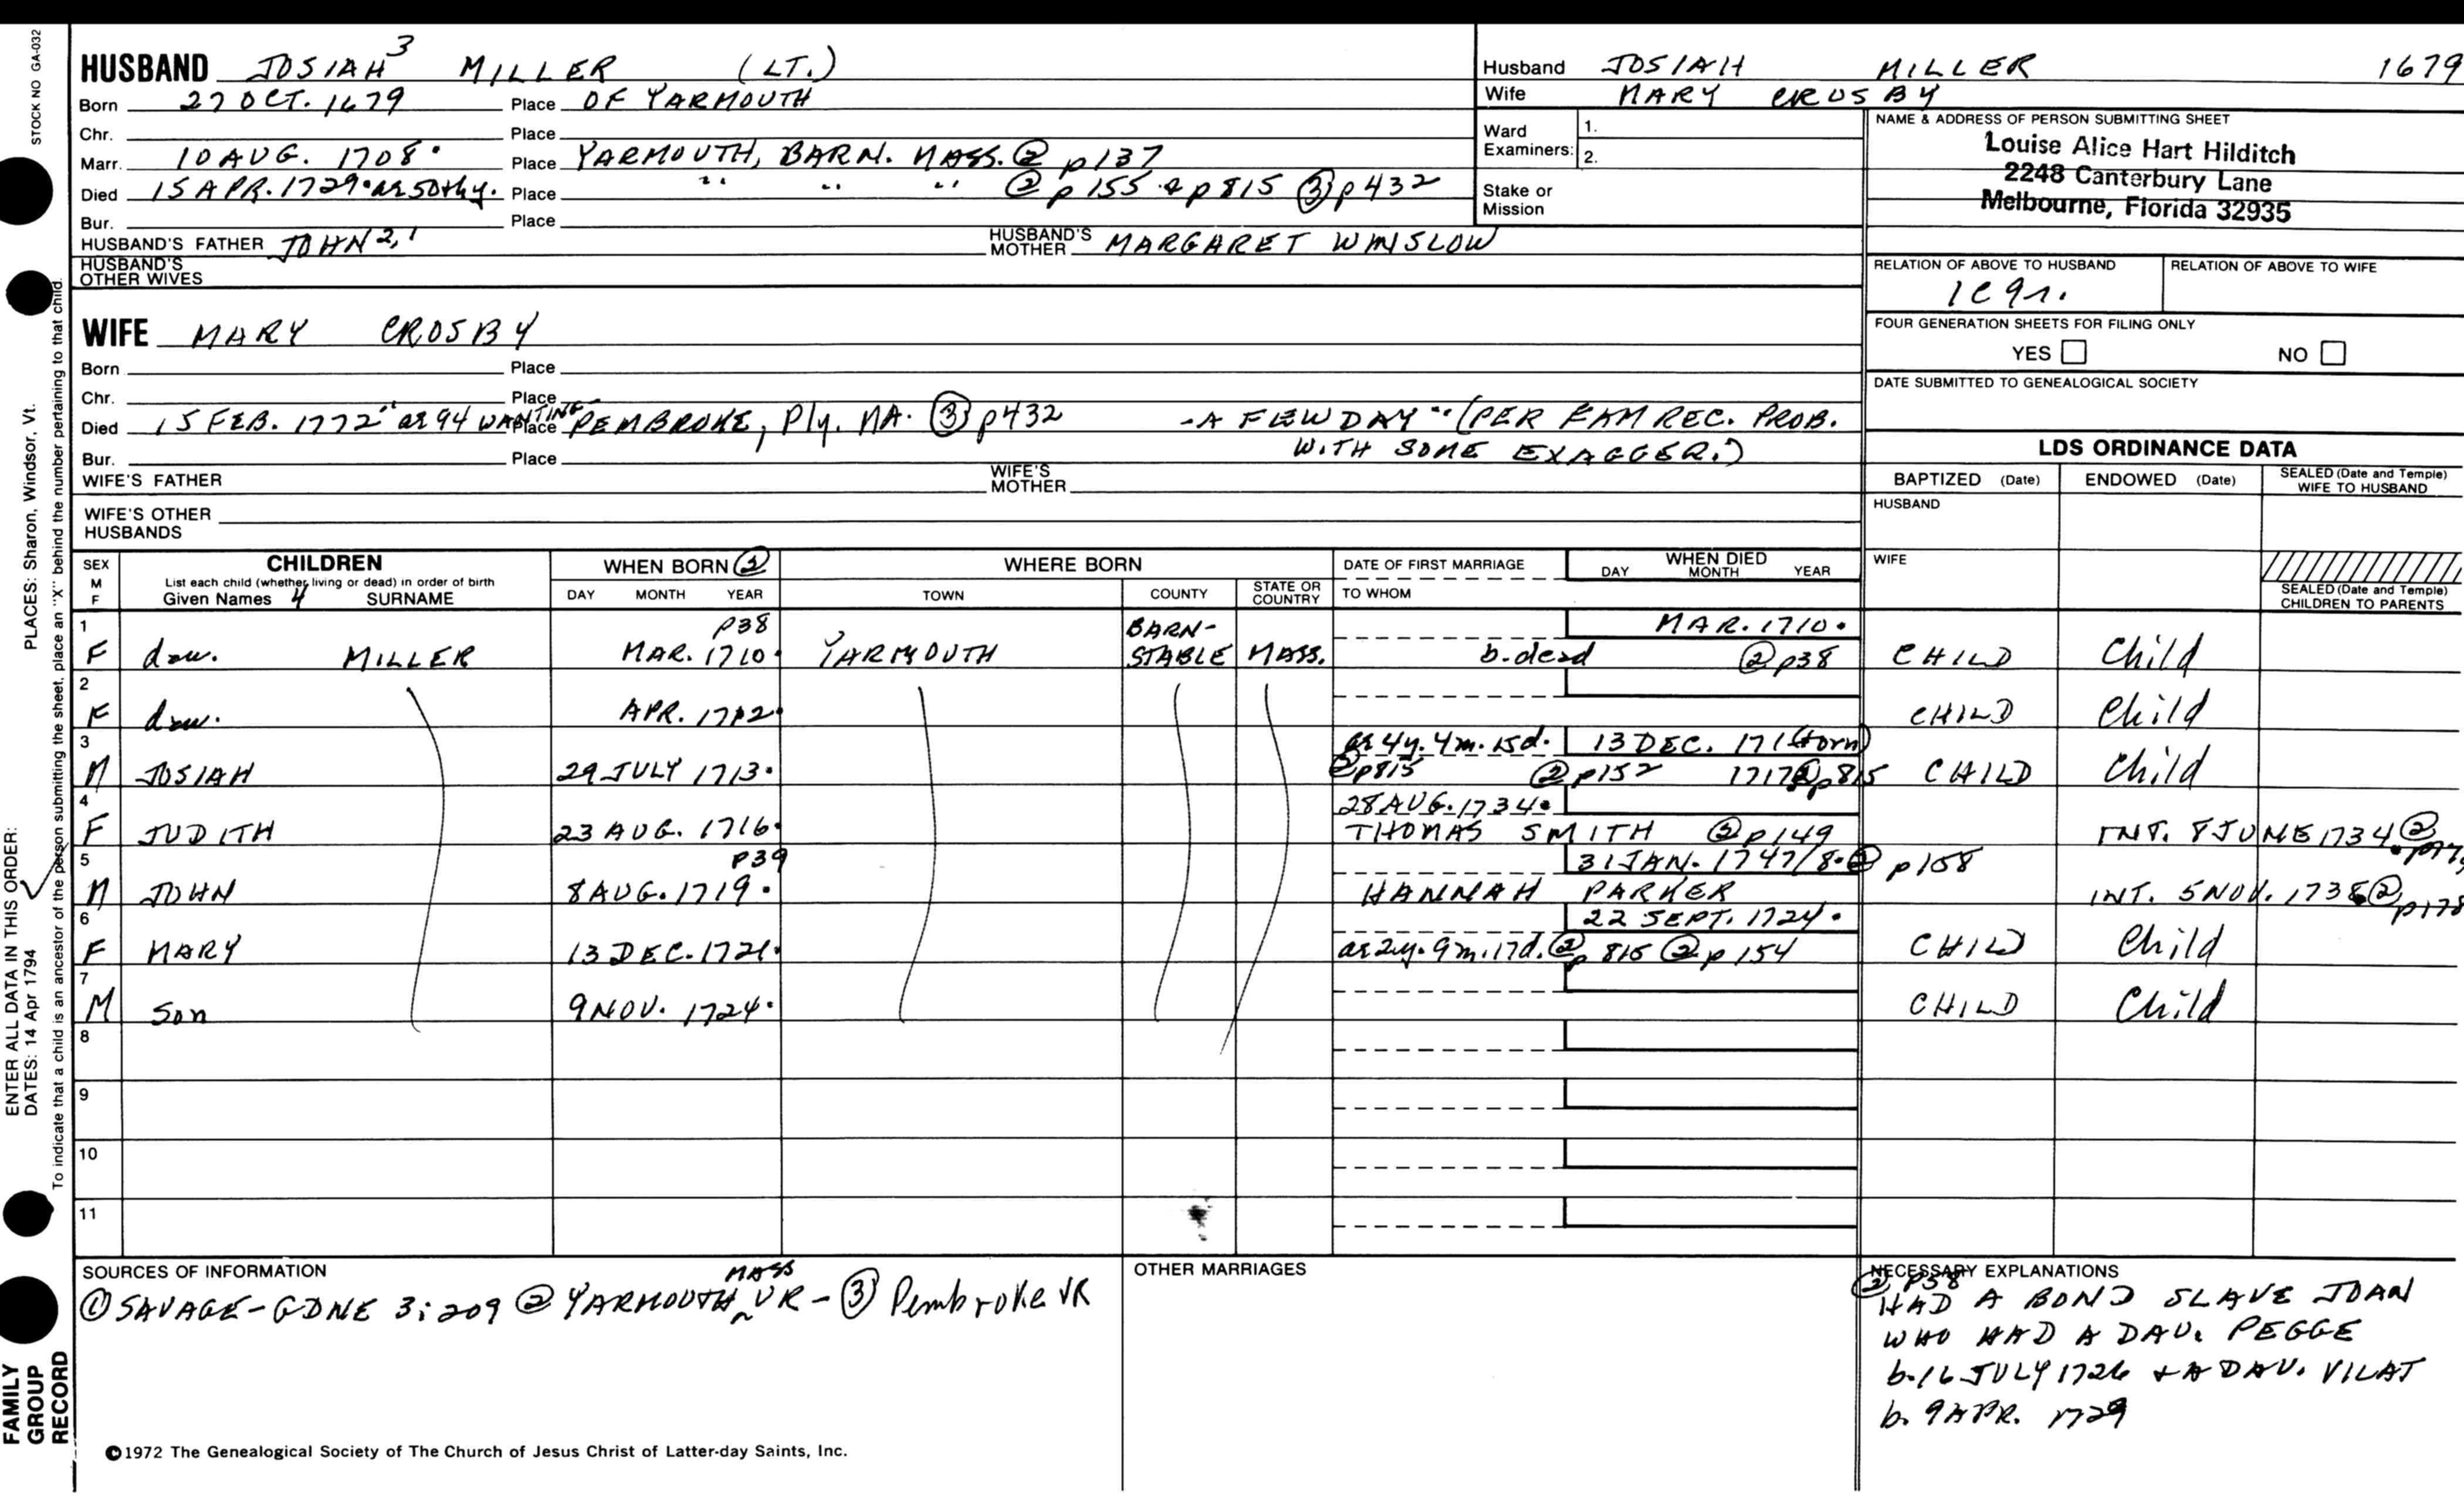 STOCK NO GA-032
HUSBAND JOSIAH 3 MILLER (LT.)
Born 27 OCT. 1679 Place OF YARMOUTH
Chr. Place
Marr. 10 AUG. 1708. Place YARMOUTH, BARN. MASS. ② p137
Died 15 APR. 1729. ae 50th y. Place " " " ② p155 & p815 ③ p432
Bur. Place
HUSBAND'S FATHER JOHN 2,1 HUSBAND'S MOTHER MARGARET WINSLOW
HUSBAND'S OTHER WIVES
Husband JOSIAH MILLER 1679
Wife MARY CROSBY
Ward Examiners: 1.
2.
Stake or Mission
NAME & ADDRESS OF PERSON SUBMITTING SHEET
Louise Alice Hart Hilditch
2248 Canterbury Lane
Melbourne, Florida 32935
RELATION OF ABOVE TO HUSBAND RELATION OF ABOVE TO WIFE
1c9r.
FOUR GENERATION SHEETS FOR FILING ONLY
YES NO
DATE SUBMITTED TO GENEALOGICAL SOCIETY
WIFE MARY CROSBY
Born Place
Chr. Place
Died 15 FEB. 1772 "ae 94 WANTING Place PEMBROKE, Ply. MA. ③ p432 -A FEW DAY" (PER FAM REC. PROB.
WITH SOME EXAGGER.)
Bur. Place
WIFE'S FATHER WIFE'S MOTHER
WIFE'S OTHER HUSBANDS
LDS ORDINANCE DATA
BAPTIZED (Date) ENDOWED (Date) SEALED (Date and Temple) WIFE TO HUSBAND
HUSBAND
WIFE
SEALED (Date and Temple) CHILDREN TO PARENTS
SEX M F CHILDREN WHEN BORN ② WHERE BORN DATE OF FIRST MARRIAGE WHEN DIED
List each child (whether living or dead) in order of birth
Given Names 4 SURNAME DAY MONTH YEAR TOWN COUNTY STATE OR COUNTRY TO WHOM DAY MONTH YEAR
1 p38 BARN- MAR. 1710.
F dau. MILLER MAR. 1710. YARMOUTH STABLE MASS. b. dead ② p38 CHILD Child
2
F dau. APR. 1712. CHILD Child
3 ae 4y. 4m. 15d. 13 DEC. 171(torn)
M JOSIAH 29 JULY 1713. ② p815 ② p152 1717 ② p815 CHILD Child
4 28 AUG. 1734.
F JUDITH 23 AUG. 1716. THOMAS SMITH ② p149 INT. 8 JUNE 1734. ②
5 p39 31 JAN. 1747/8. ② p158
M JOHN 8 AUG. 1719. HANNAH PARKER INT. 5 NOV. 1738 ② p178
6 22 SEPT. 1724.
F MARY 13 DEC. 1721. ae 2y. 9m. 17d. ② p 815 ② p 154 CHILD Child
7
M Son 9 NOV. 1724. CHILD Child
8
9
10
11
SOURCES OF INFORMATION
① SAVAGE-GDNE 3:209 ② YARMOUTH MASS VR - ③ Pembroke VR
OTHER MARRIAGES
NECESSARY EXPLANATIONS
② p38
HAD A BOND SLAVE JOAN
WHO HAD A DAU. PEGGE
b. 16 JULY 1726 + A DAU. VILAT
b. 9 APR. 1729
©1972 The Genealogical Society of The Church of Jesus Christ of Latter-day Saints, Inc.
ENTER ALL DATA IN THIS ORDER:
DATES: 14 Apr 1794 PLACES: Sharon, Windsor, Vt.
To indicate that a child is an ancestor of the person submitting the sheet, place an "X" behind the number pertaining to that child.
FAMILY
GROUP
RECORD